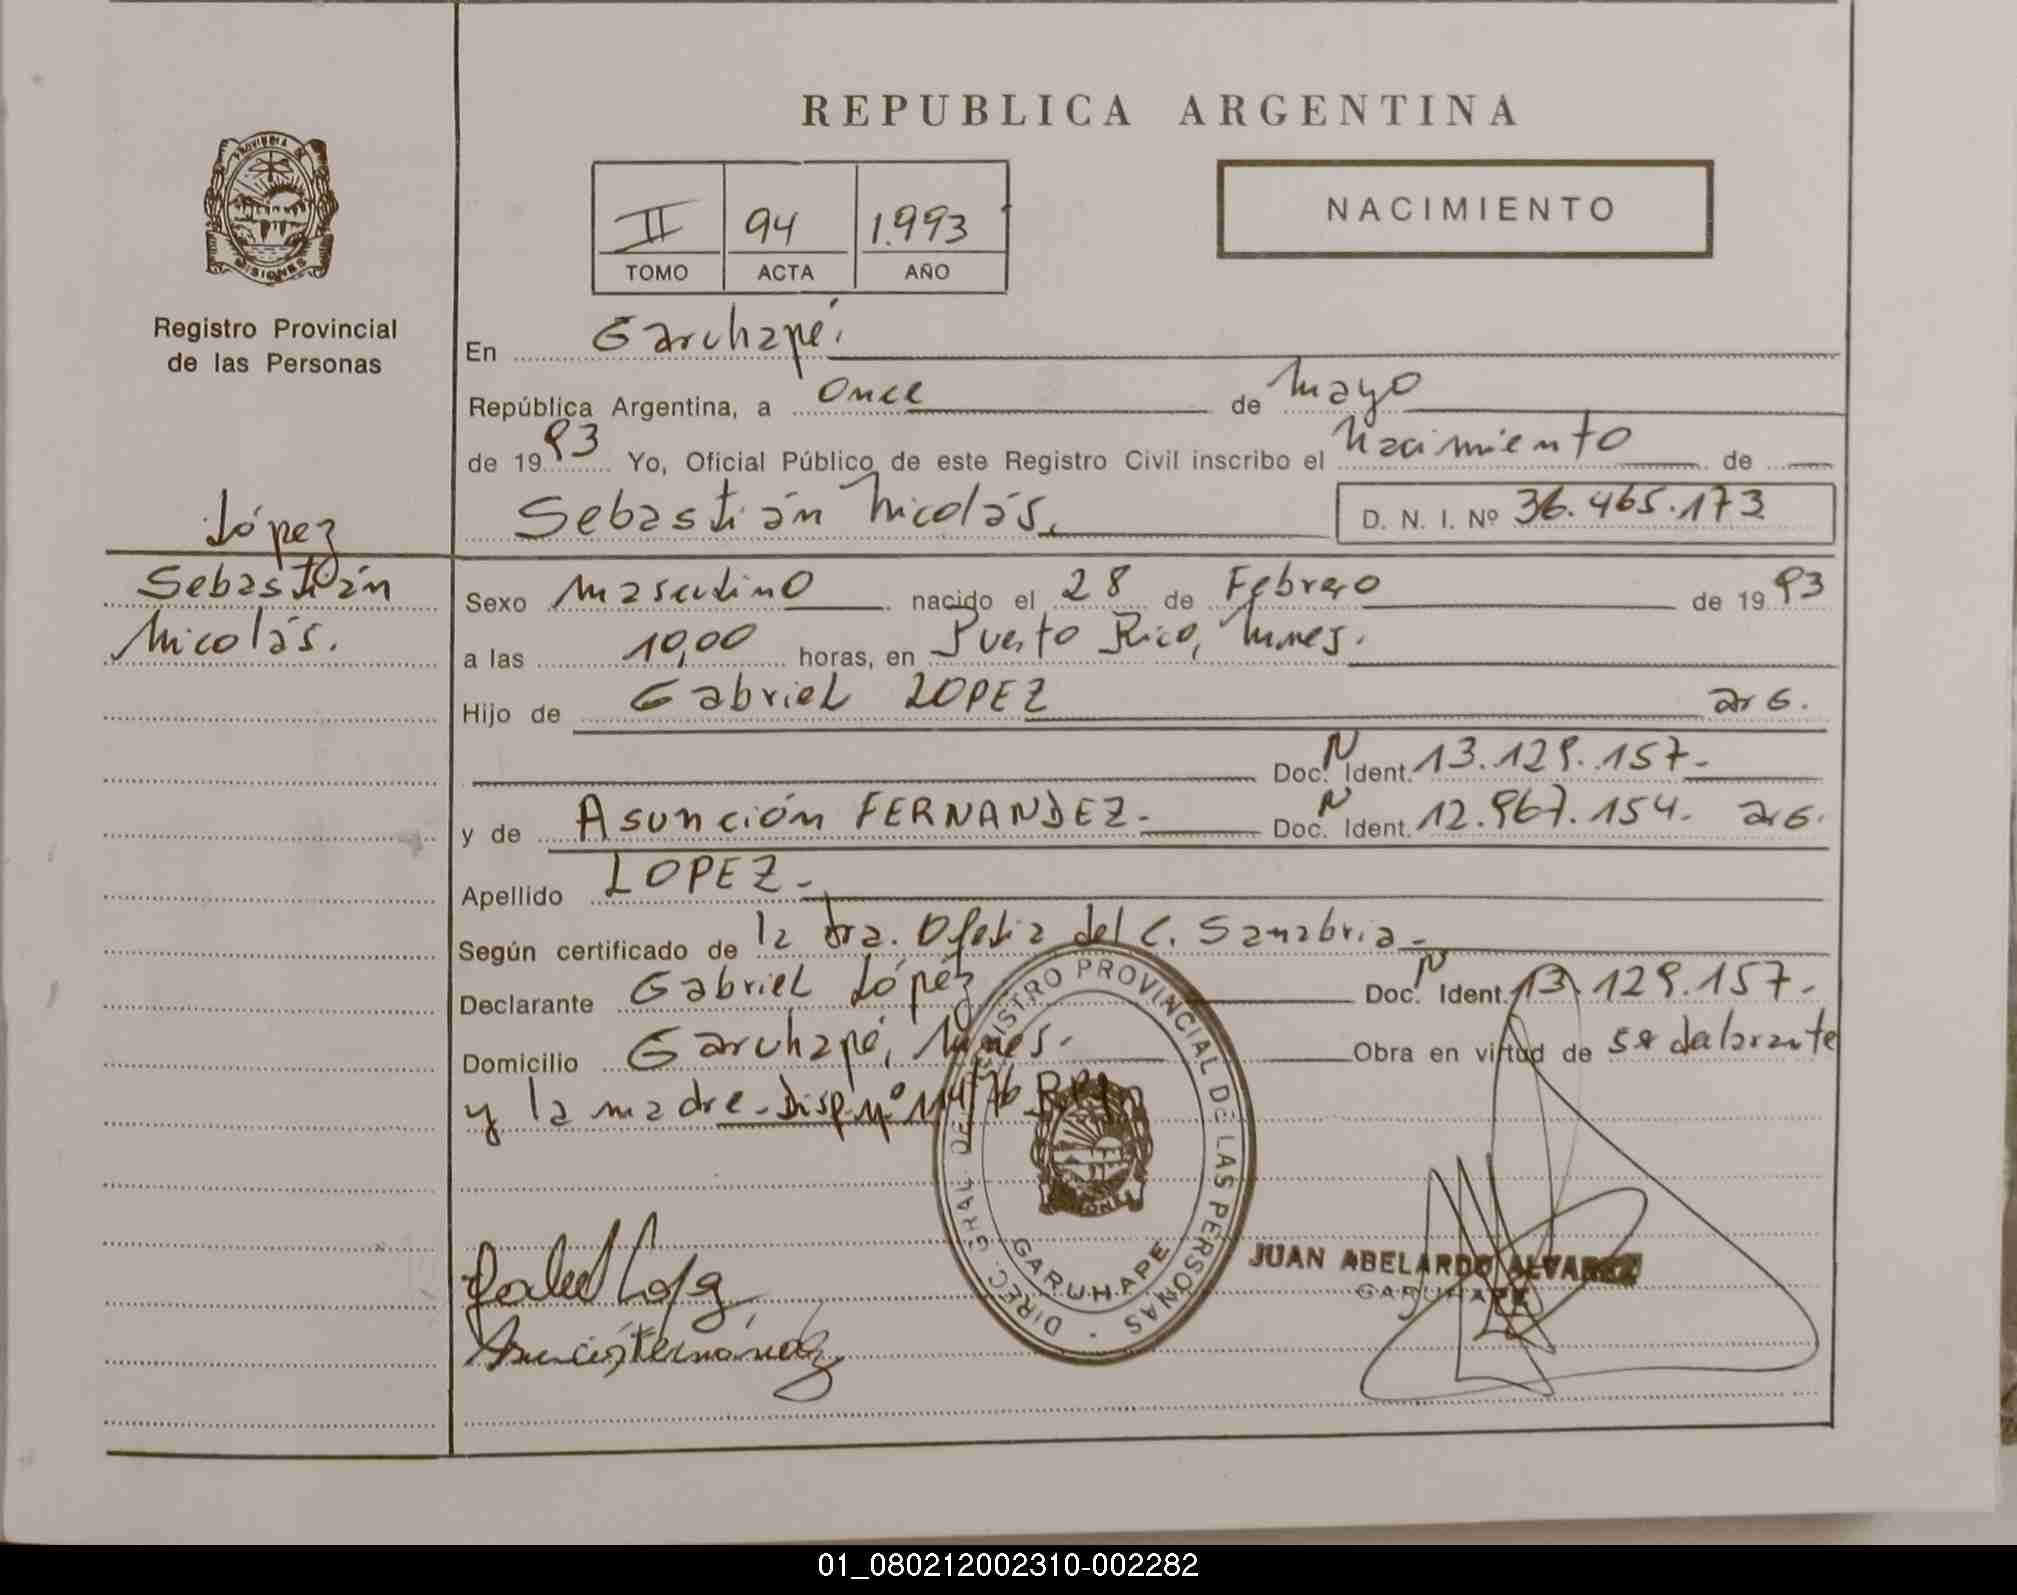 REPUBLICA ARGENTINA
PROVINCIA DE
MISIONES
Registro Provincial
de las Personas
II 94 1.993
TOMO ACTA AÑO
NACIMIENTO
López
Sebastián
Nicolás.
En Garuhapé.
República Argentina, a once de Mayo
de 19 93 Yo, Oficial Público de este Registro Civil inscribo el Nacimiento de
Sebastián Nicolás. D. N. I. Nº 36.465.173
Sexo Masculino nacido el 28 de Febrero de 19 93
a las 10,00 horas, en Puerto Rico, Mnes.
Hijo de Gabriel LOPEZ arG.
Doc. N Ident. 13.129.157.-
y de Asunción FERNANDEZ.- Doc. N Ident. 12.967.154. arG.
Apellido LOPEZ.-
Según certificado de la Dra. Ofelia del C. Sanabria.-
Declarante Gabriel López Doc. N Ident. 13.129.157.-
Domicilio Garuhapé, Mnes.- Obra en virtud de ser declarante
y la madre - Disp. Nº 114/76 RPP
DIREC. GRAL. DE REGISTRO PROVINCIAL DE LAS PERSONAS
GARUHAPE
JUAN ABELARDO ALVAREZ
GARUHAPE
Gabriel López
Asunción Fernández
01_080212002310-002282